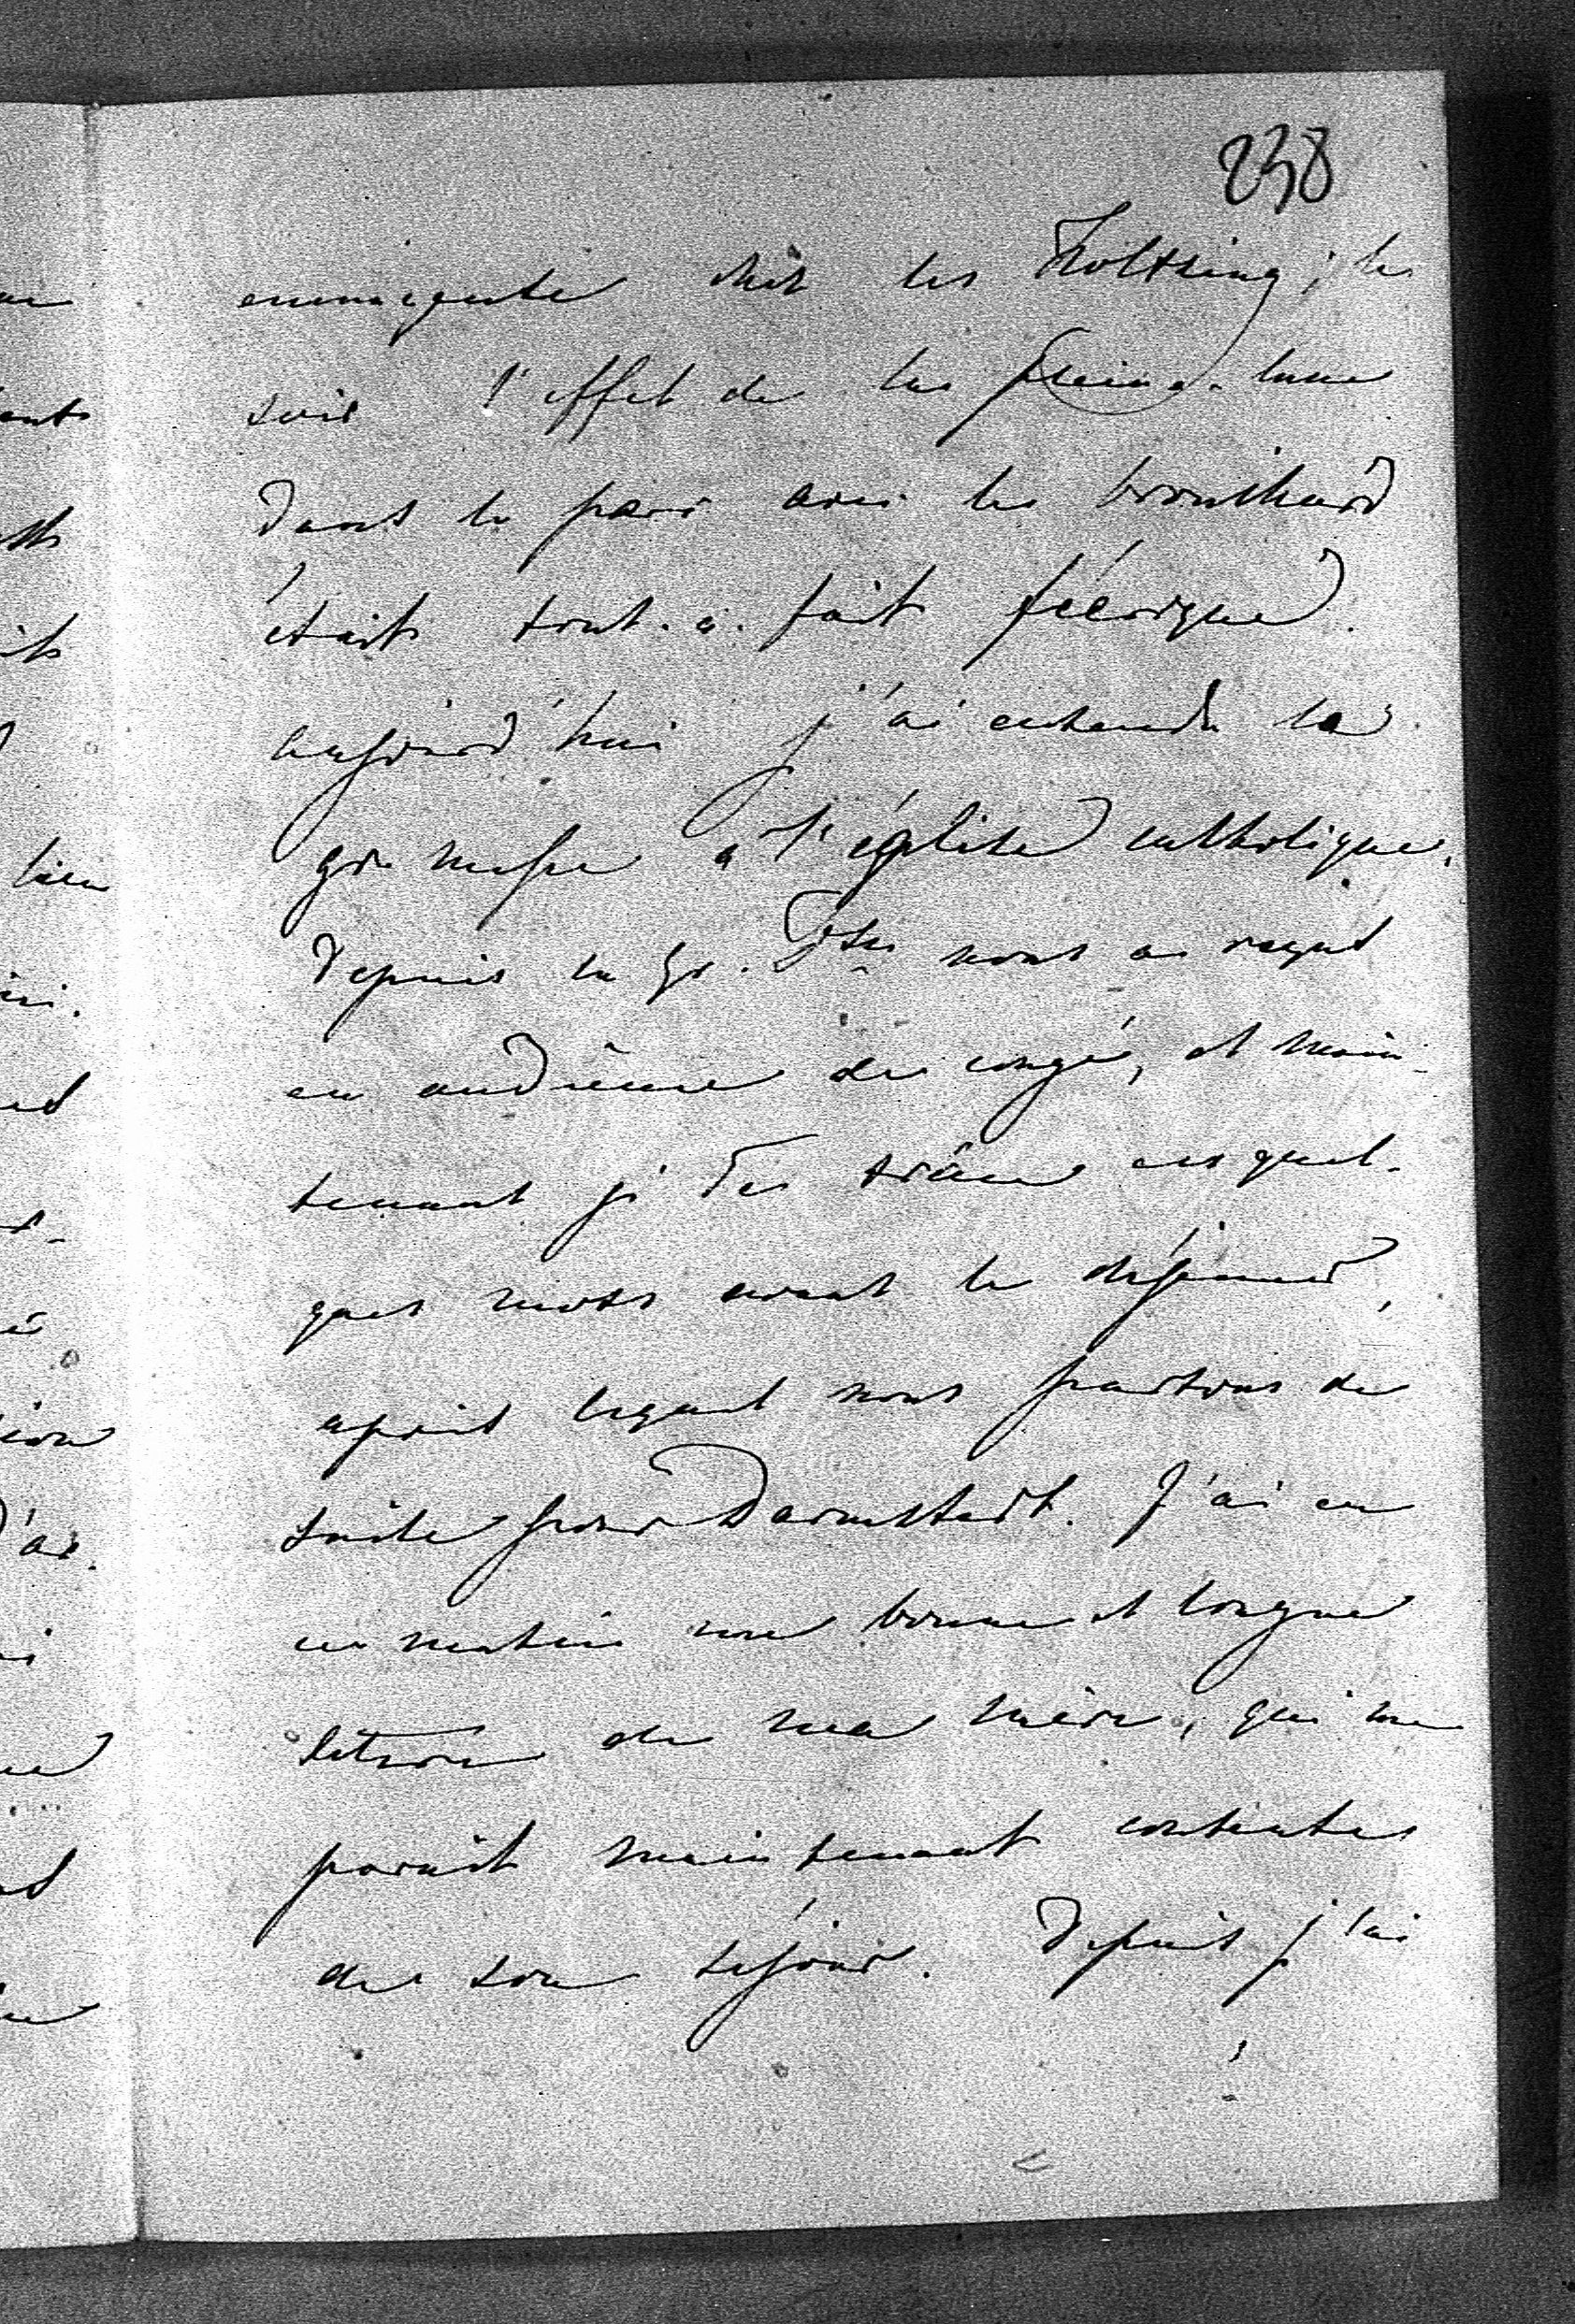 238
chez les Holtzing; le
soir l'effet de la pleine-lune
dans le parc avec le brouillard
était tout-à-fait féérique.
Aujourd'hui j'ai entendu la
gr. messe à l'église catholique.
Depuis la Gr. Dsse nous a reçut
en audience de congé, et main-
tenant je Te trace ces quel-
ques mots avant le déjeuner,
après lequel nous partons de
suite pour Darmstadt. J'ai eu
ce matin une bonne et longue
lettre de ma mère, qui me
parait maintenant contente
de son séjour. Depuis j'ai